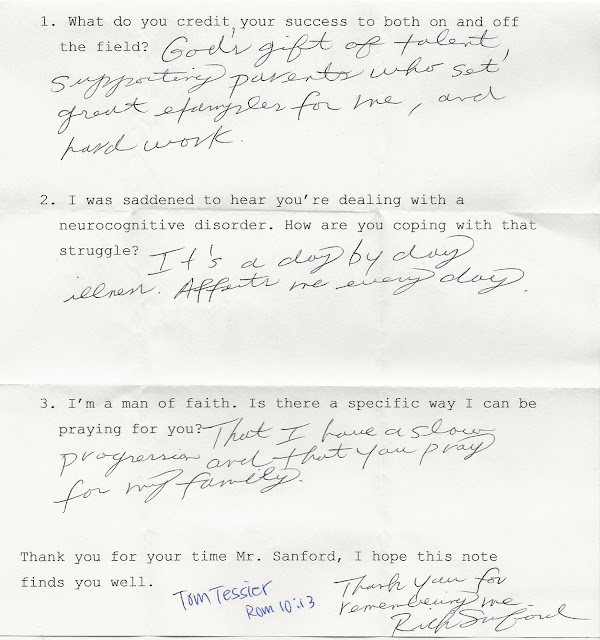 1. What do you credit your success to both on and off
the field? God's gift of talent,
supporting parents who set
great examples for me, and
hard work.
2. I was saddened to hear you're dealing with a
neurocognitive disorder. How are you coping with that
struggle? It's a day by day
illness. Affects me every day.
3. I'm a man of faith. Is there a specific way I can be
praying for you? That I have a slow
progression and that you pray
for my family.
Thank you for your time Mr. Sanford, I hope this note
finds you well.
Tom Tessier
Rom 10:13
Thank you for
remembering me.
Rick Sanford